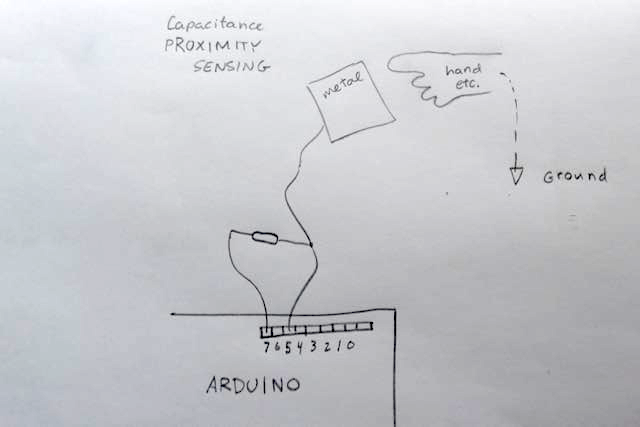 Capacitance
PROXIMITY
SENSING
metal
hand
etc.
Ground
7 6 5 4 3 2 1 0
ARDUINO